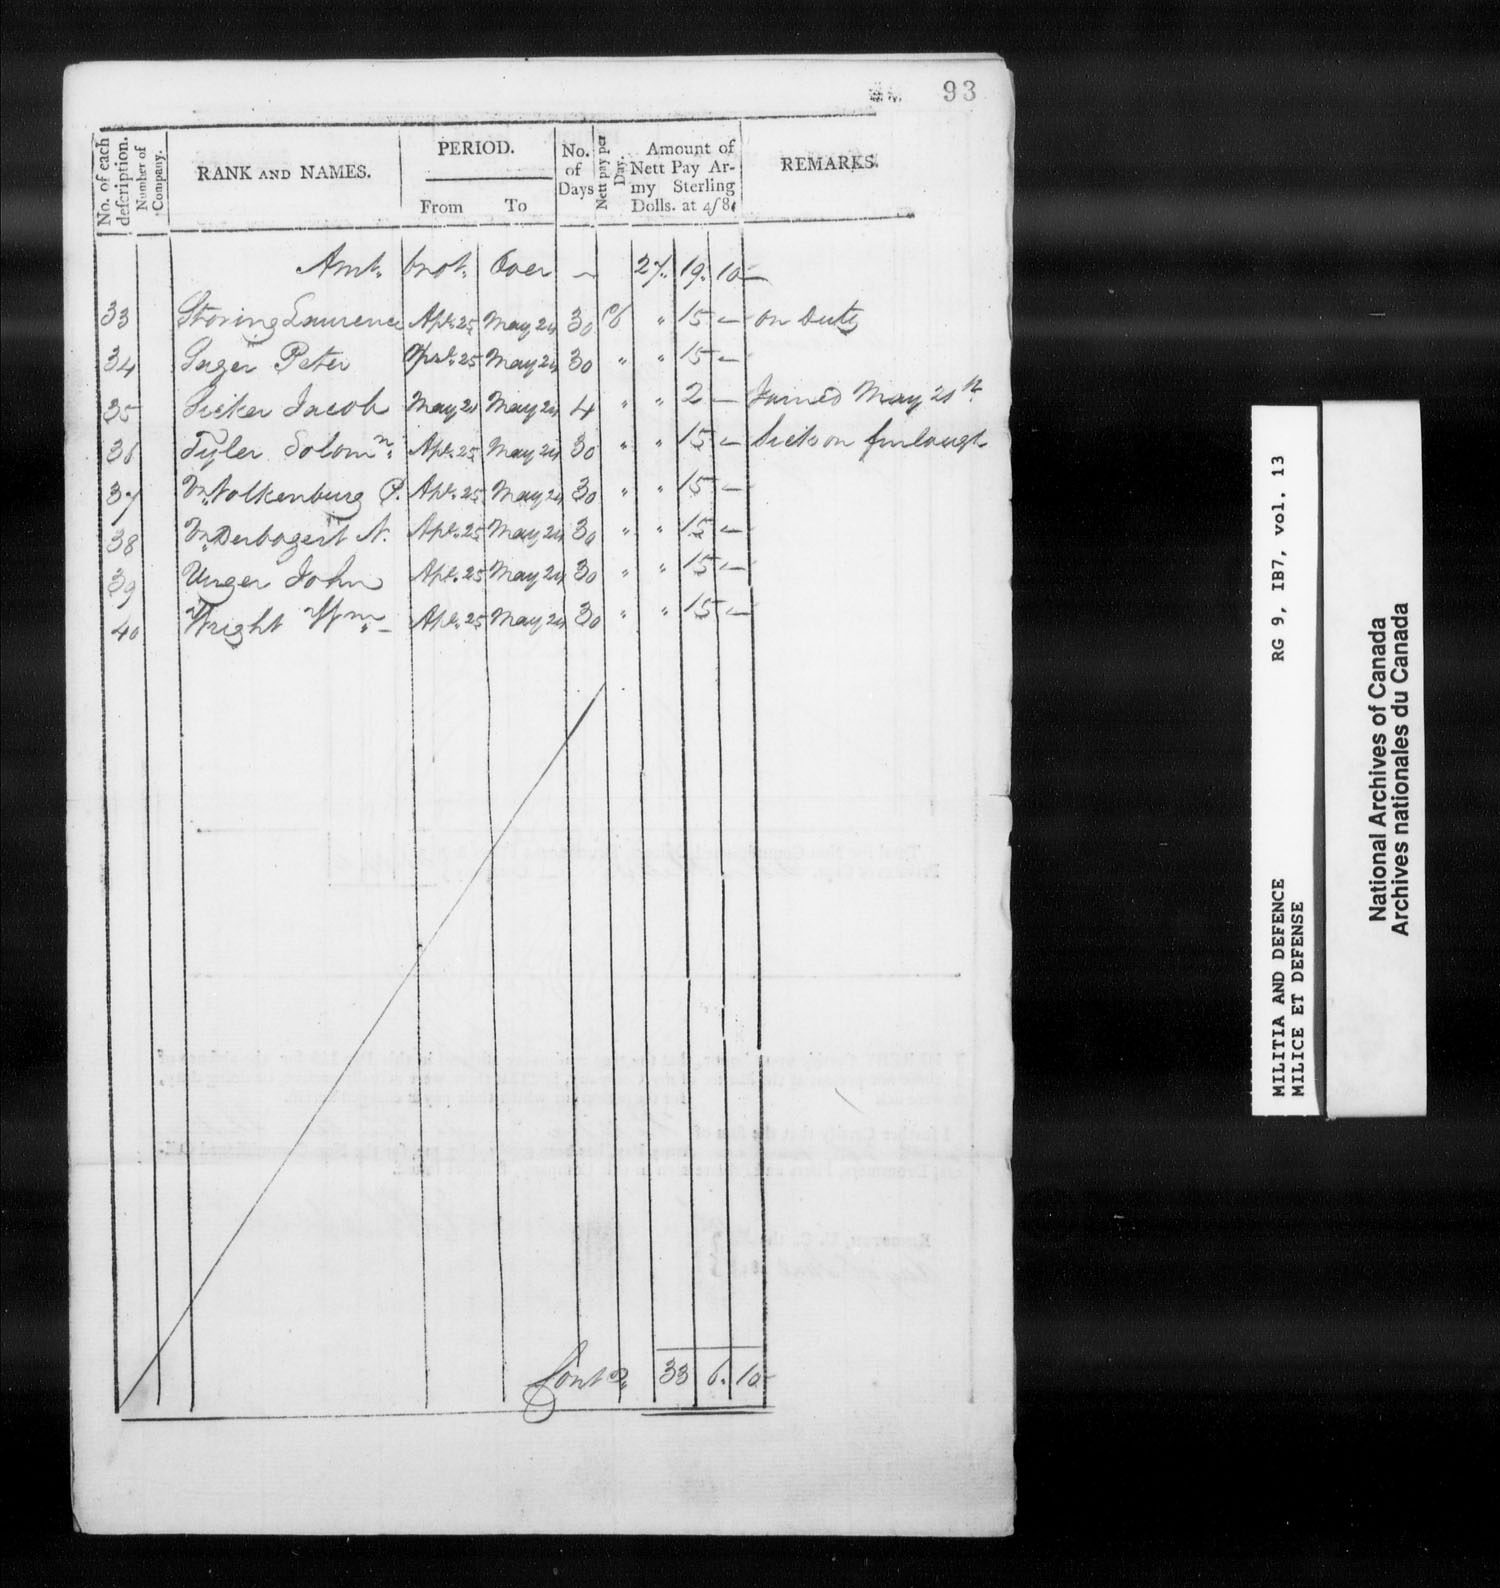 93
No. of each description.
Number of Company.
RANK AND NAMES.
PERIOD.
From To
No. of Days
Nett pay per Day.
Amount of Nett Pay Army Sterling Dolls. at 4/8
REMARKS.
Amt. brot. Over — 27. 19. 10 —
33 Storing Laurence Apl. 25 May 24 30 /6 " 15 — on Duty
34 Sager Peter Aprl. 25 May 24 30 " " 15 —
35 Sicker Jacob May 21 May 24 4 " " 2 — Joined May 21st.
36 Tyler Solomn. Apl. 25 May 24 30 " " 15 — Sick on furlough
37 Vn. Volkenburg P. Apl. 25 May 24 30 " " 15 —
38 Vn. Derbogert N. Apl. 25 May 24 30 " " 15 —
39 Unger John Apl. 25 May 24 30 " " 15 —
40 Wright Wm. — Apl. 25 May 24 30 " " 15 —
Contd. 33 6. 10 —
MILITIA AND DEFENCE RG 9, IB7, vol. 13
MILICE ET DEFENSE
National Archives of Canada
Archives nationales du Canada